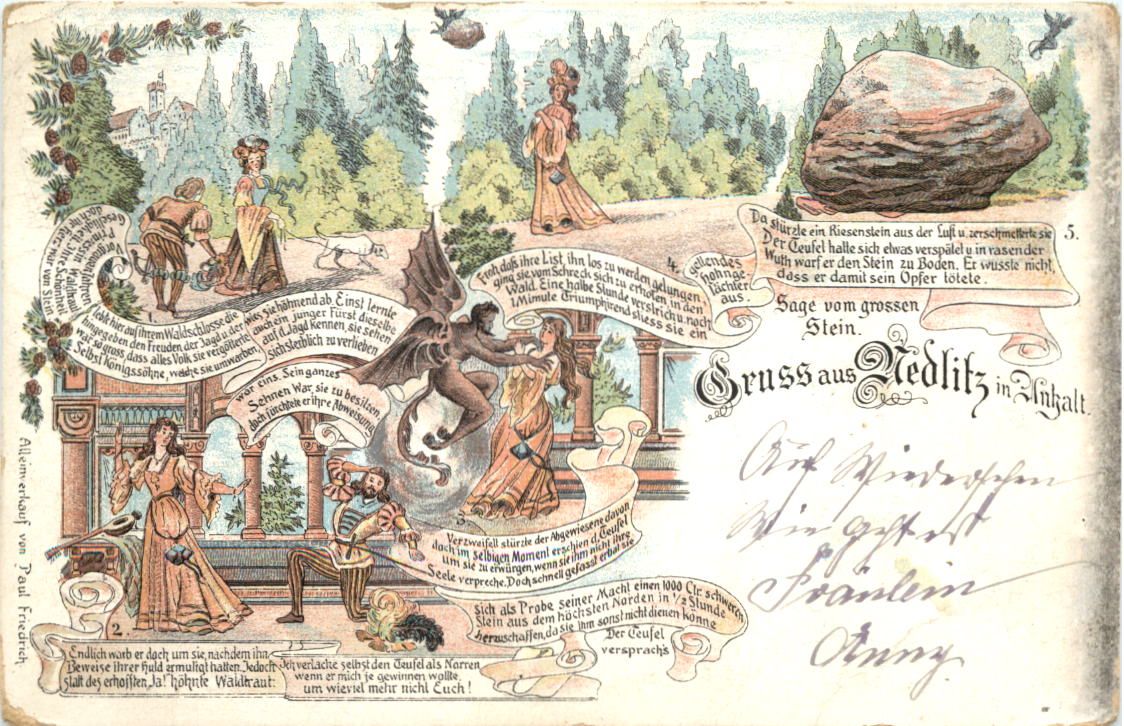 Prinzessin Waldtraut
Geselligkeit. Ihre Schönheit
doch ihr Herz war von Stein
lebte hier auf ihrem Waldschlosse die
hingegeben den Freuden der Jagd u. der
war so gross, dass alles Volk sie vergötterte,
Selbst Königssöhne, welche sie umwarben,
wies sie höhnend ab. Einst lernte
auch ein junger Fürst dieselbe
auf d. Jagd kennen, sie sehen
sich sterblich zu verlieben
war eins. Sein ganzes
Sehnen War, sie zu besitzen
doch fürchtete er ihre Abweisung
2.
Endlich warb er doch um sie, nachdem ihn
Beweise ihrer Huld ermutigt hatten. Jedoch
statt des erhofften Ja! höhnte Waldtraut:
Ich verlache selbst den Teufel als Narren
wenn er mich je gewinnen wollte,
um wieviel mehr nicht Euch!
3.
Verzweifelt stürzte der Abgewiesene davon
doch im selbigen Moment erschien d. Teufel
um sie zu erwürgen, wenn sie ihm nicht ihre
Seele verpreche. Doch schnell gefasst erbat sie
sich als Probe seiner Macht einen 1000 Ctr. schweren
Stein aus dem höchsten Norden in 1/2 Stunde
herzuschaffen, da sie ihm sonst nicht dienen könne
Der Teufel
versprach's
4.
Froh, dass ihre List, ihn los zu werden gelungen,
ging sie vom Schreck sich zu erholen, in den
Wald. Eine halbe Stunde verstrich u. noch
1 Minute Triumphrend stiess sie ein
gellendes
Hohnge-
lächter
aus.
5.
Da stürzte ein Riesenstein aus der Luft u. zerschmetterte sie
Der Teufel hatte sich etwas verspätet u. in rasender
Wuth warf er den Stein zu Boden. Er wusste nicht,
dass er damit sein Opfer tötete.
Sage vom grossen
Stein.
Gruss aus Nedlitz in Anhalt.
Auf Wiedersehen
Wie geht es
Fräulein
Anny
Alleinverkauf von Paul Friedrich